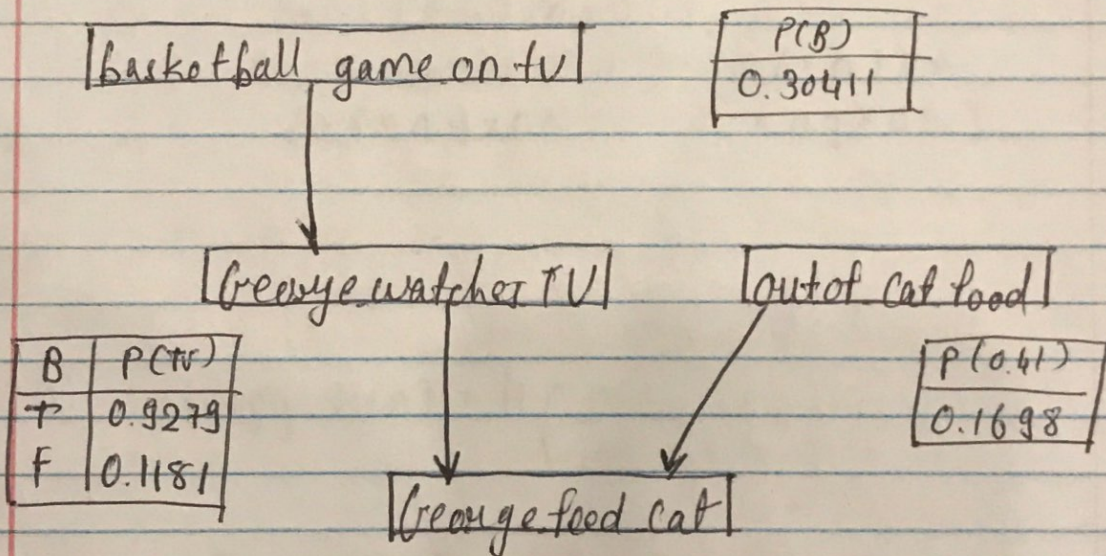 basketball game on tv
P(B)
0.30411
George watches TV
out of cat food
B P(TV)
T 0.9279
F 0.1181
P(0.41)
0.1698
George feed cat